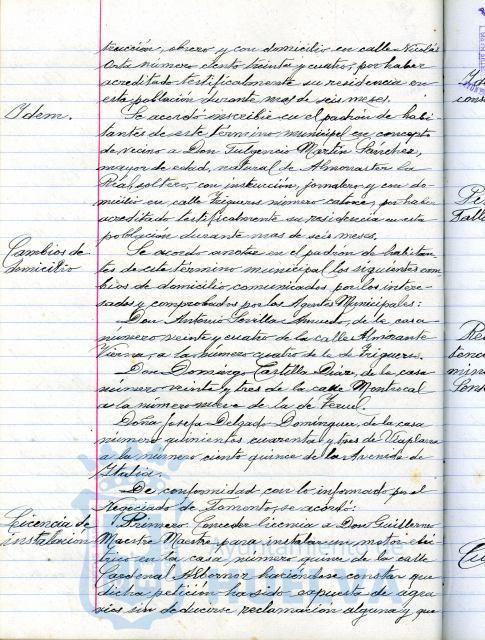 trucción, obrero y con domicilio en calle Nicolás
Orta número ciento treinta y cuatro, por haber
acreditado testificalmente su residencia en
esta población durante mas de seis meses.
Idem.
Se acordó inscribir en el padrón de habi-
tantes de este término municipal en concepto
de vecino a Don Fulgencio Martín Sánchez,
mayor de edad, natural de Almonaster la
Real, soltero, con instrucción, jornalero y con do-
micilio en calle Trigueros número catorce, por haber
acreditado testificalmente su residencia en esta
población durante mas de seis meses.
Cambios de
domicilio
Se acordó anotar en el padrón de habitan-
tes de este término municipal los siguientes cam
bios de domicilio comunicados por los intere-
sados y comprobados por los Agentes Municipales:
Don Antonio Sevilla, de la casa
número veinte y cuatro de la calle Almirante
a la número cuatro de la de Trigueros.
Don Domingo Castilla Díaz, de la casa
número veinte y tres de la calle Montrocal
a la número nueve de la de Teruel.
Doña Josefa Delgado Domínguez, de la casa
número quinientos cuarenta y tres de Viaplana
a la número ciento quince de la Avenida de
Italia.
De conformidad con lo informado por el
Negociado de Fomento, se acordó:
Licencia de
instalación
Primero. Conceder licencia a Don Guillermo
Maestre Maestre para instalar un motor eléc
trico en la casa número quince de la calle
Cardenal Albornoz haciéndose constar que
dicha petición ha sido expuesta de agra-
vios sin deducirse reclamación alguna y que
Ayuntamiento de